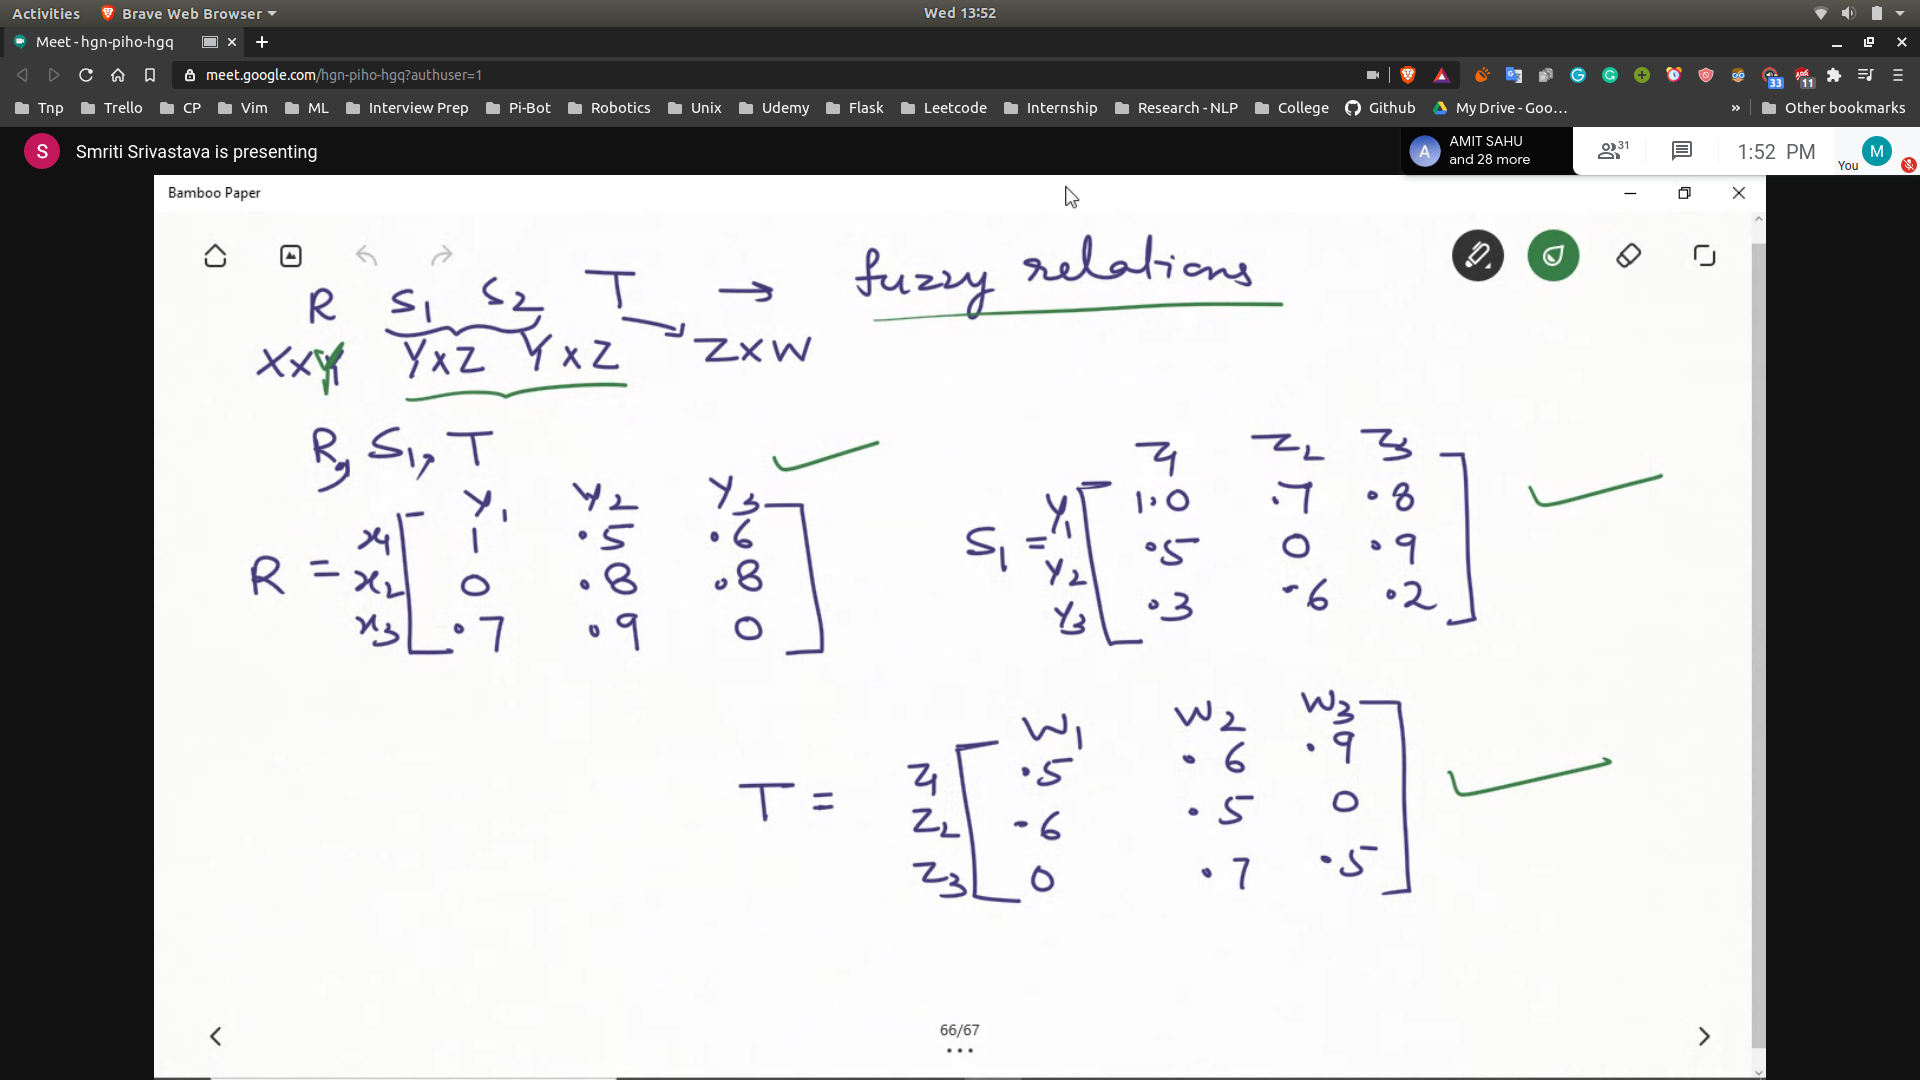 Activities Brave Web Browser Wed 13:52
Meet - hgn-piho-hgq
meet.google.com/hgn-piho-hgq?authuser=1 33 11
Tnp Trello CP Vim ML Interview Prep Pi-Bot Robotics Unix Udemy Flask Leetcode Internship Research - NLP College Github My Drive - Goo... » Other bookmarks
S Smriti Srivastava is presenting
A AMIT SAHU
and 28 more
31 1:52 PM You M
Bamboo Paper
R S1 S2 T → fuzzy relations
X×Y Y×Z Y×Z Z×W
R, S1, T
y1 y2 y3
R =
x1 1 .5 .6
x2 0 .8 .8
x3 .7 .9 0
z1 z2 z3
S1 =
y1 1.0 .7 .8
y2 .5 0 .9
y3 .3 .6 .2
w1 w2 w3
T =
z1 .5 .6 .9
z2 .6 .5 0
z3 0 .7 .5
66/67